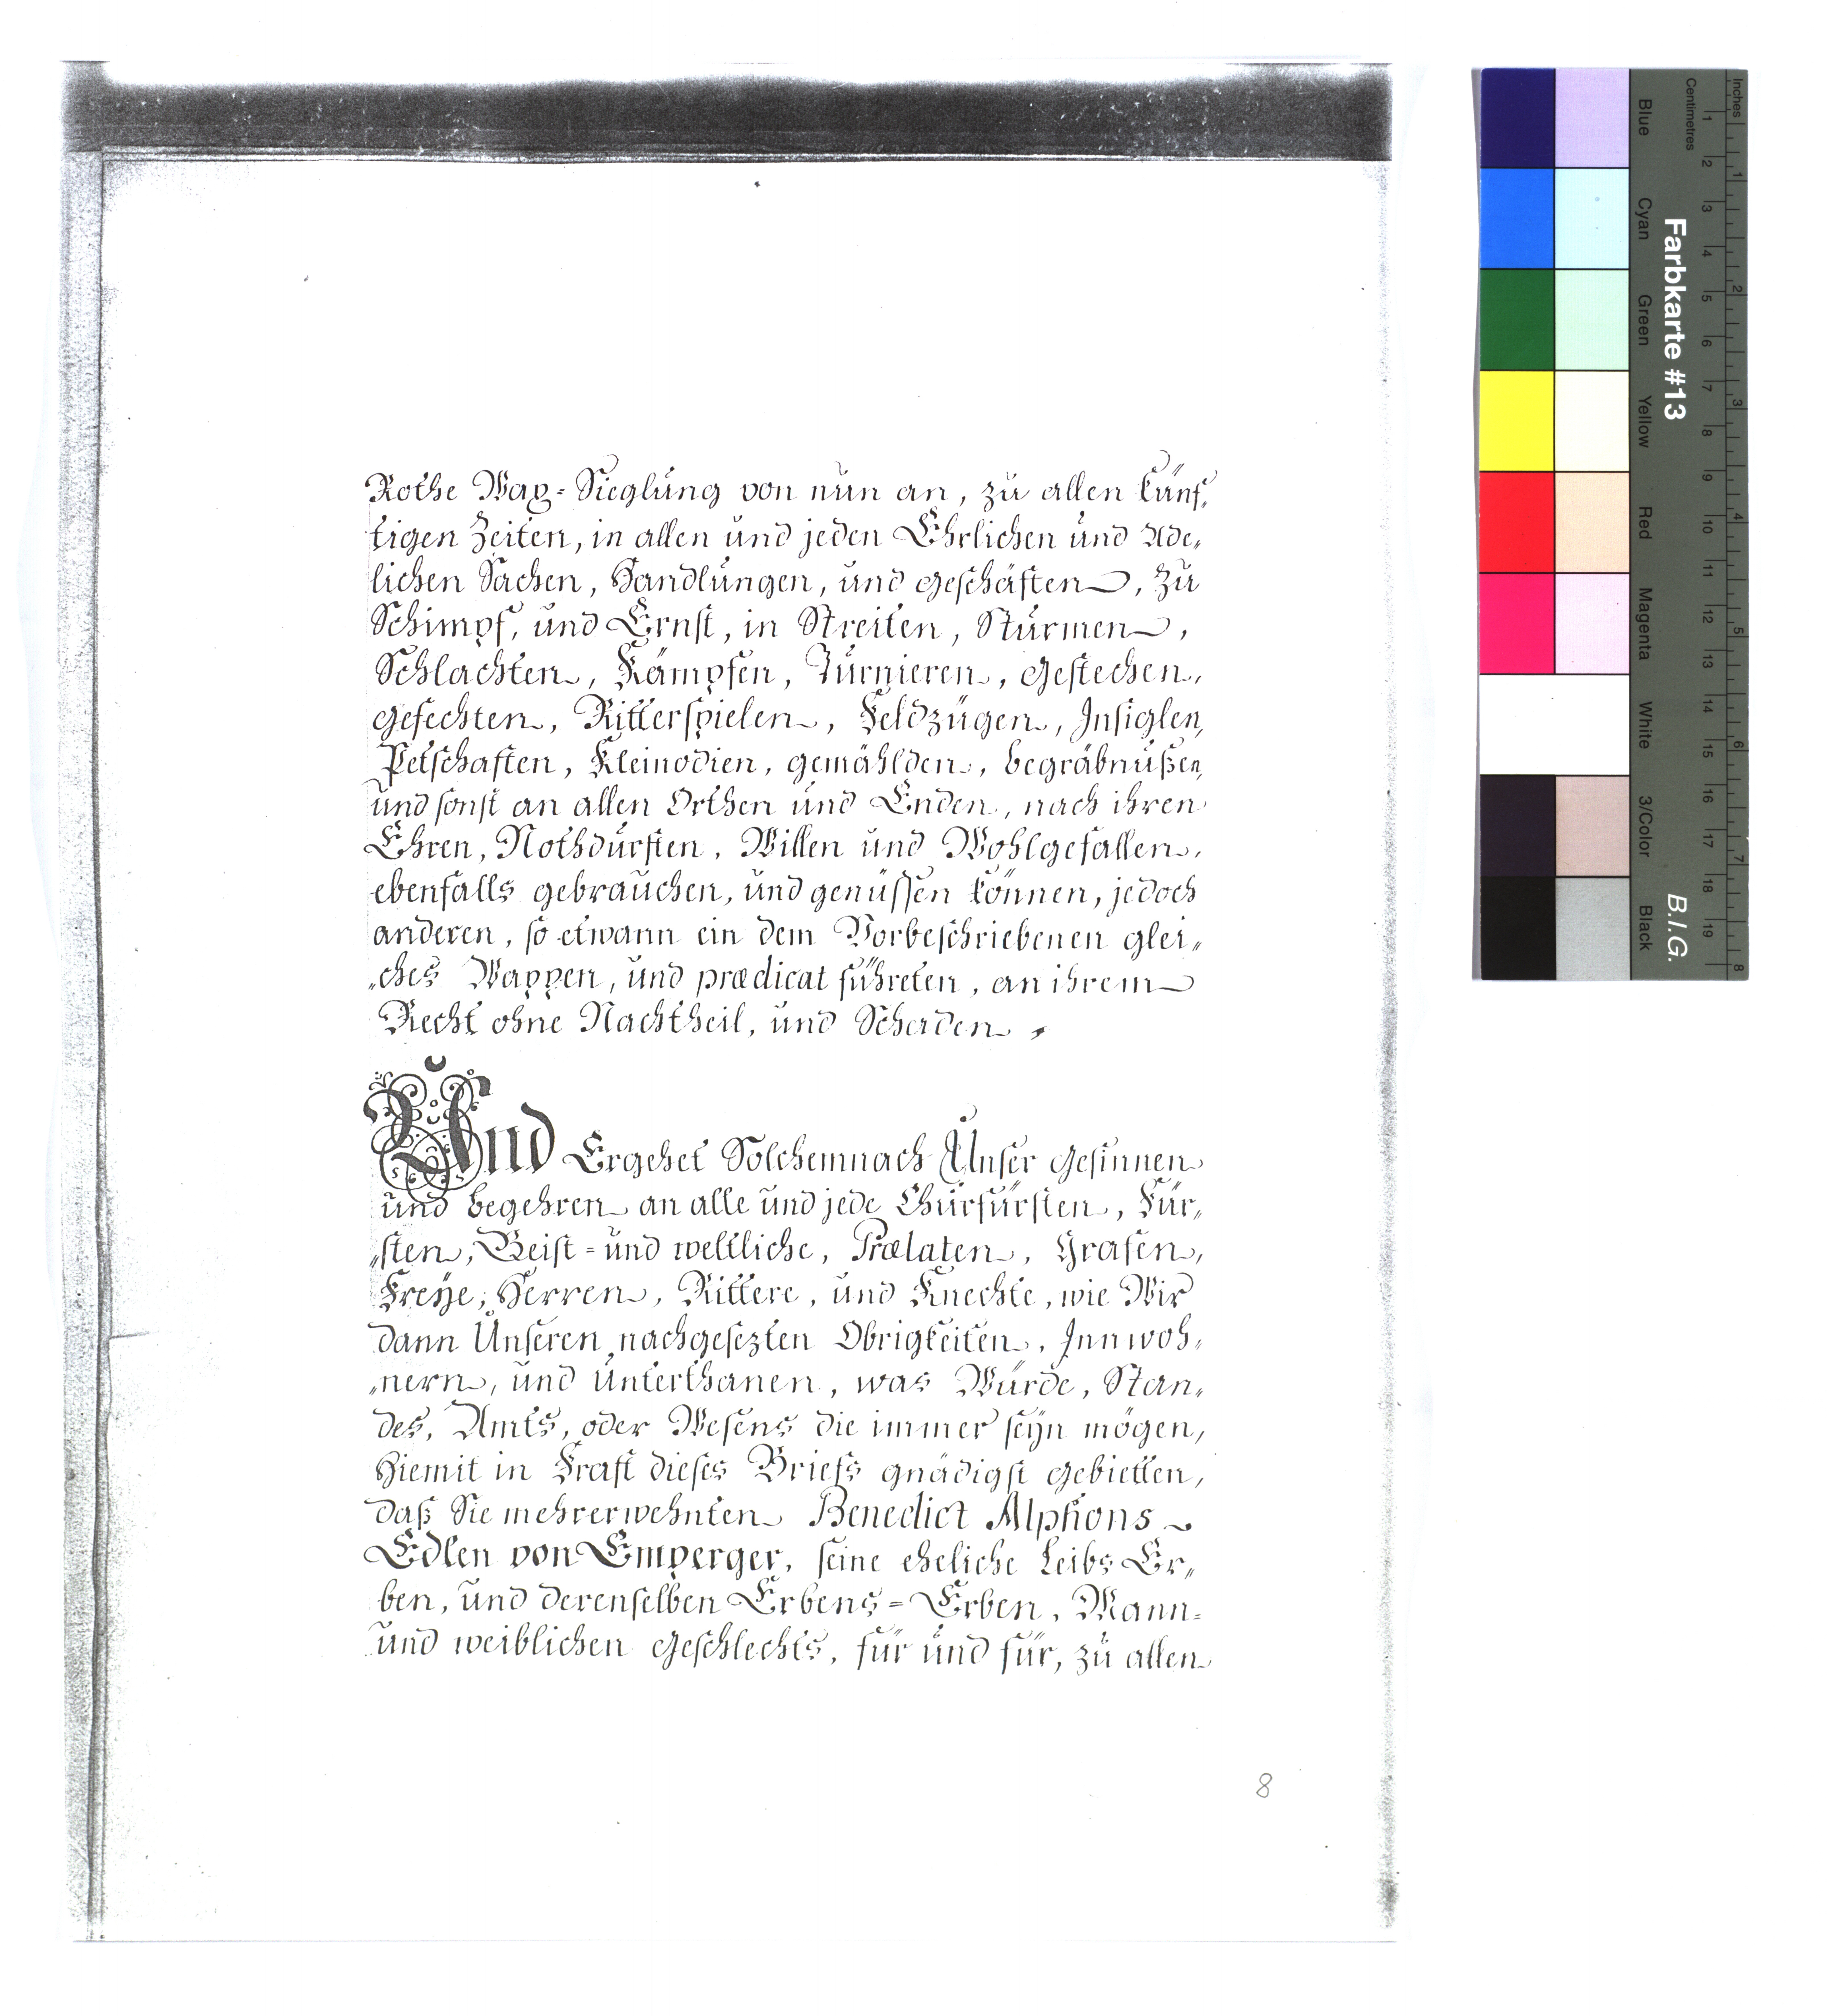 Rothe Wax=Sieglung von nun an, zu allen künf„
tigen Zeiten, in allen und jeden Ehrlichen und Ade„
lichen Sachen, Handlungen, und geschäften, zu
Schimpf, und Ernst, in Streiten, Stürmen,
Schlachten, Kämpfen, Turnieren, gestechen,
gefechten, Ritterspielen, Feldzügen, Insiglen,
Petschaften, Kleinodien, gemählden, begräbnußen,
und sonst an allen Orthen und Enden, nach ihren
Ehren, Nothdurften, Willen und Wohlgefallen,
ebenfalls gebrauchen, und genüssen können, jedoch
anderen, so etwann ein dem Vorbeschriebenen glei„
„ches Wappen, und prædicat führeten, an ihrem
Recht ohne Nachtheil, und Schaden,
Und Ergehet Solchemnach Unser gesinnen
und begehren an alle und jede Churfürsten, Für„
„sten, Geist=und weltliche, Prælaten, Grafen,
Freÿe, Herren, Rittere, und Knechte, wie Wir
dann Unseren nachgesezten Obrigkeiten, Innwoh„
„nern, und Unterthanen, was Würde, Stan„
des, Amts, oder Wesens die immer seÿn mögen,
hiemit in Kraft dieses Briefs gnädigst gebietten,
daß Sie mehrerwehnten Benedict Alphons
Edlen von Emperger, seine eheliche Leibs Er„
ben, und derenselben Erbens=Erben, Mann=
und weiblichen geschlechts, für und für, zu allen
8
Farbkarte #13
B.I.G.
Inches
Centimetres
Blue
Cyan
Green
Yellow
Red
Magenta
White
3/Color
Black
1 2 3 4 5 6 7 8 9 10 11 12 13 14 15 16 17 18 19
1 2 3 4 5 6 7 8